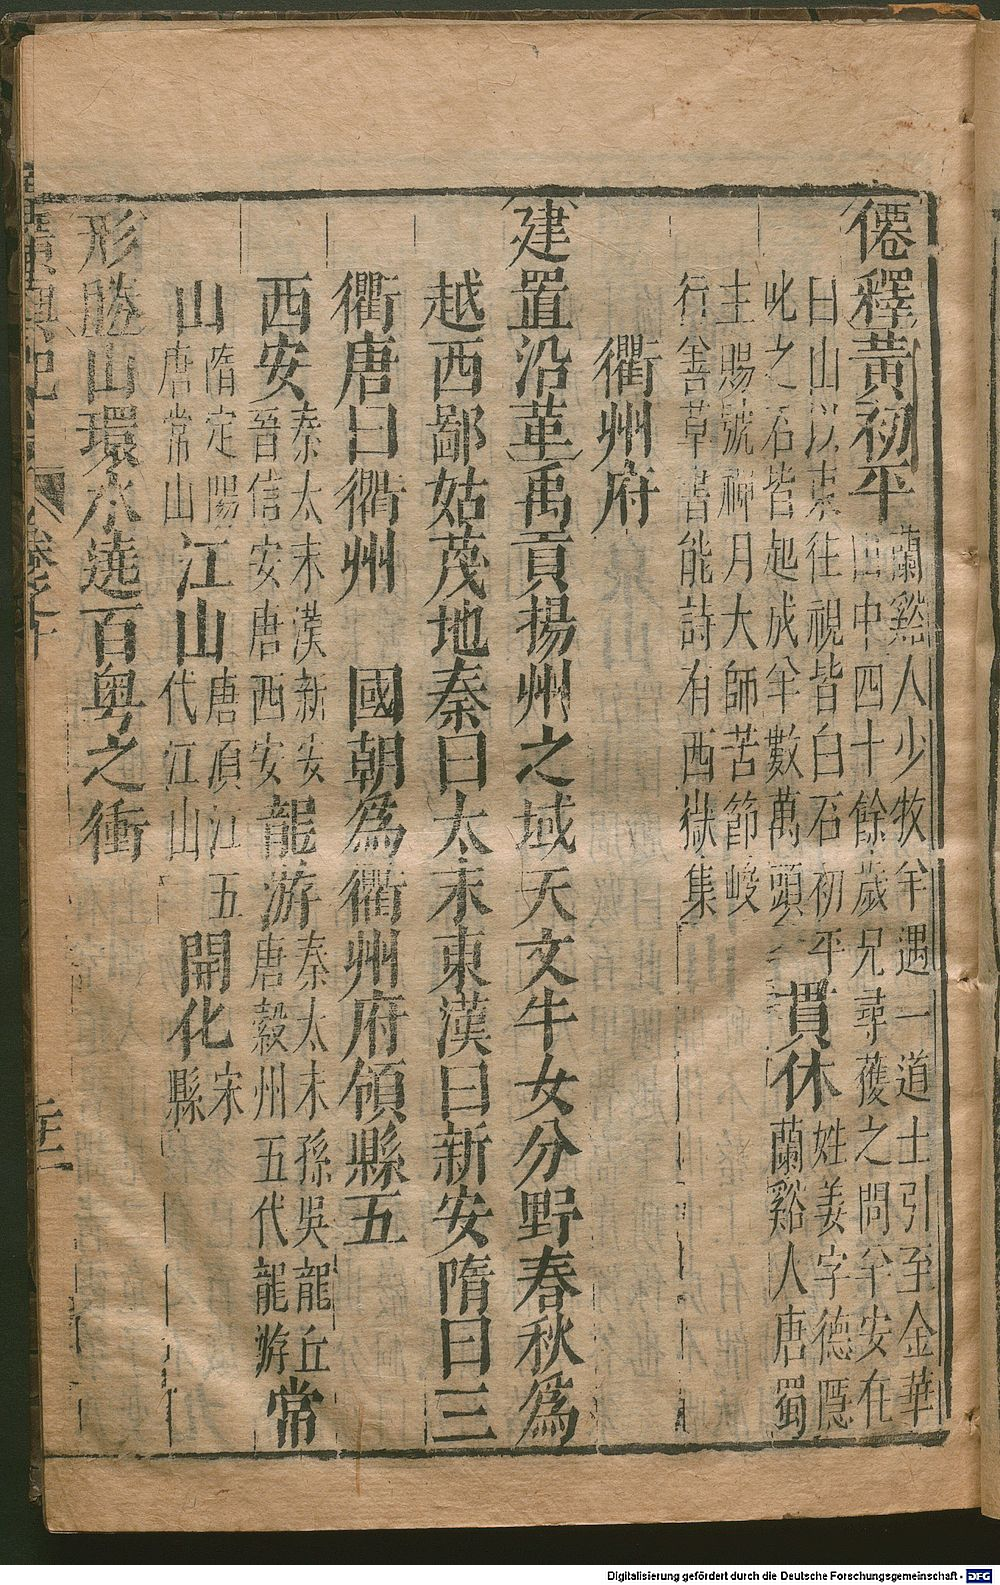 僊釋黃初平蘭谿人少牧羊遇一道士引至金華
山中四十餘歲兄尋獲之問羊安在
曰山以東往視皆白石初平
叱之石皆起成羊數萬頭貫休姓姜字德隱
蘭谿人唐蜀
主賜號禪月大師苦節峻
行善草書能詩有西嶽集
衢州府
建置沿革禹貢揚州之域天文牛女分野春秋為
越西鄙姑茂地秦曰太末東漢曰新安隋曰三
衢唐曰衢州 國朝為衢州府領縣五
西安秦太末漢新安
晉信安唐西安龍游秦太末孫吳龍丘
唐穀州五代龍游常
山隋定陽
唐常山江山唐須江五
代江山開化宋
縣
形勝山環水遶百粵之衝
廣輿記 卷之十
Digitalisierung gefördert durch die Deutsche Forschungsgemeinschaft - DFG